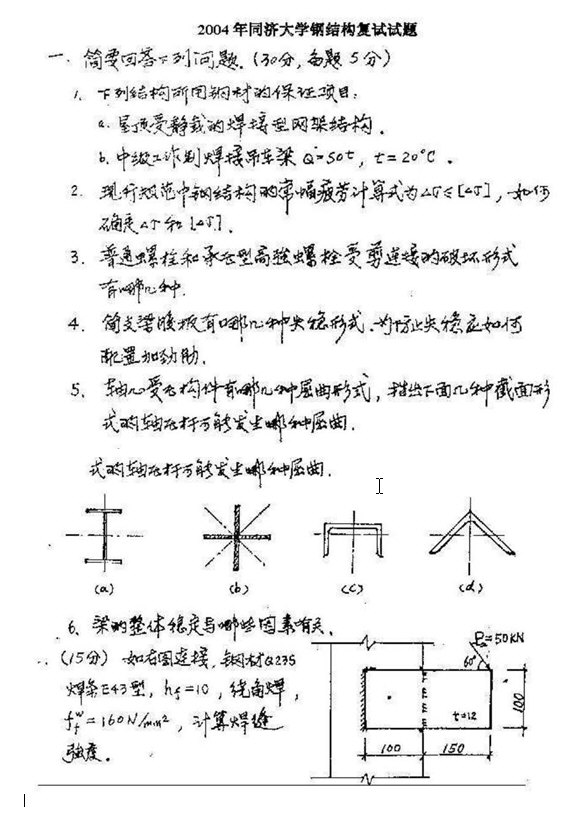 2004年同济大学钢结构复试试题
一. 简要回答下列问题.(30分,每题5分)
1. 下列结构所用钢材的保证项目:
a. 屋顶受静载的焊接型网架结构.
b. 中级工作制焊接吊车梁 Q=50t, t=20°C.
2. 现行规范中钢结构的常幅疲劳计算式为△σ≤[△σ], 如何
确定△σ和[△σ].
3. 普通螺栓和承压型高强螺栓受剪连接的破坏形式
有哪几种.
4. 简支梁腹板有哪几种失稳形式.为防止失稳应如何
配置加劲肋.
5. 轴心受压构件有哪几种屈曲形式, 指出下面几种截面形
式的轴压杆可能发生哪种屈曲.
式的轴压杆可能发生哪种屈曲.
(a) (b) (c) (d)
6. 梁的整体稳定与哪些因素有关.
(15分) 如右图连接, 钢材Q235
焊条E43型, hf=10, 绕角焊,
ffw=160N/mm², 计算焊缝
强度.
P=50KN
60°
t=12
100
100 150